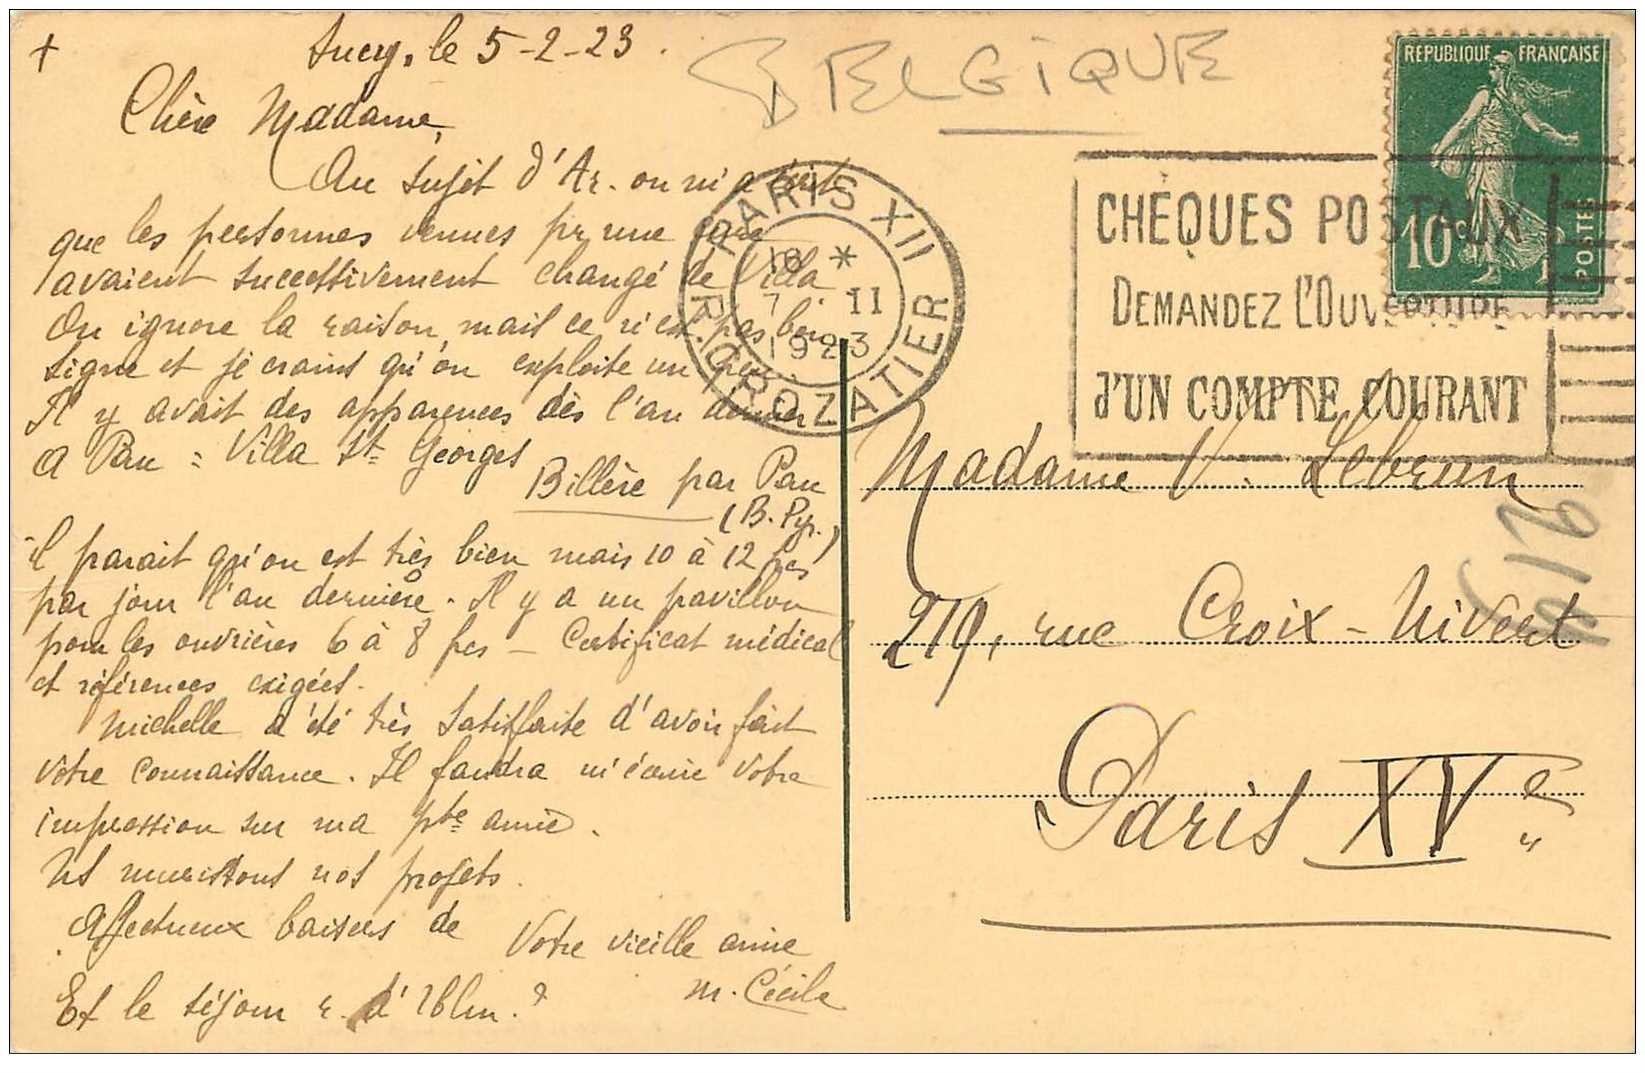 +
Sucy, le 5-2-23.
Chère Madame,
Au sujet d'Ar. on m'a écrit
que les personnes venues pr une cure
avaient successivement changé de Villa.
On ignore la raison, mais ce n'est pas bon
signe et je crains qu'on exploite un peu.
Il y avait des apparences dès l'an dernier
A Pau = Villa St Georges
Billère par Pau
(B. Pyr.)
il parait qu'on est très bien mais 10 à 12 frs
par jour l'an dernière. Il y a un pavillon
pour les ouvrières 6 à 8 frs - Certificat médical
et références exigées.
Michelle a été très satisfaite d'avoir fait
votre connaissance. Il faudra m'écrire votre
impression sur ma pte amie.
Ns nourissons nos projets.
Affectueux baisers de
Votre vieille amie
M. Cécile
Et le séjour r. d'Ulm ?
BELGIQUE
REPUBLIQUE FRANÇAISE
10c
POSTES
PARIS XII
R. CROZATIER
16 *
7 - II
1923
CHÈQUES POSTAUX
DEMANDEZ L'OUVERTURE
d'UN COMPTE COURANT
Madame V. Lebrun
219, rue Croix-Nivert
Paris XVe